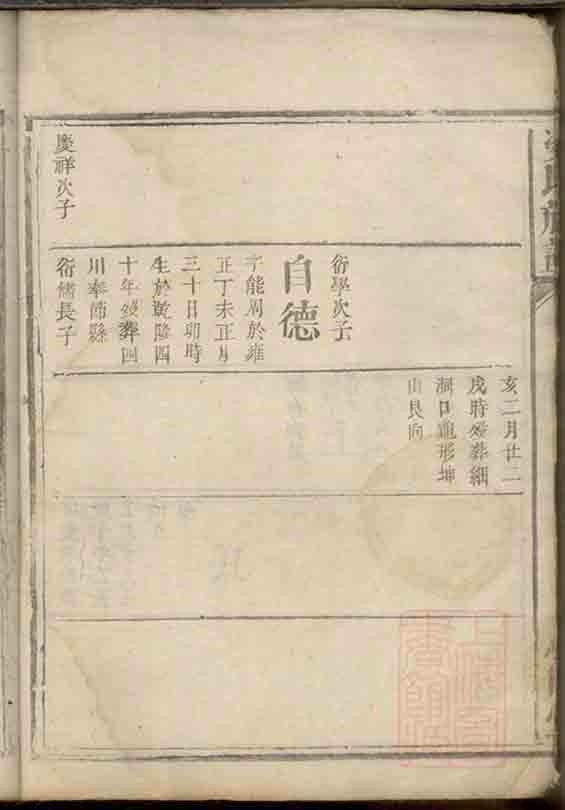 亥二月廿二
戌時歿葬細
洞口龜形坤
山艮向
衍學次子
自德
字能周於雍
正丁未正月
三十日卯時
生於乾隆四
十年歿葬四
川奉節縣
衍儒長子
慶祥次子